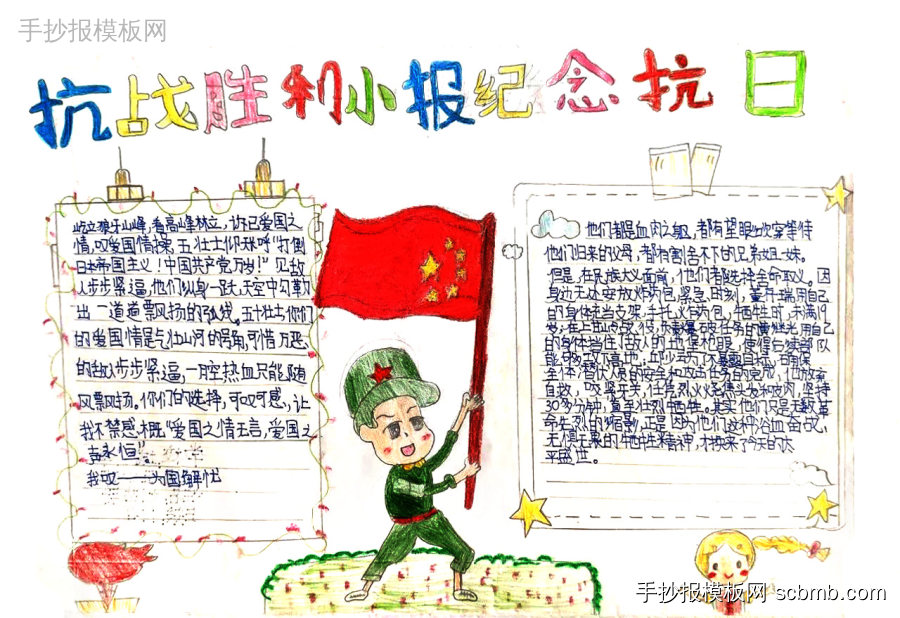 手抄报模板网
抗战胜利小报纪念抗日
屹立狼牙山峰,看高峰林立,诉己爱国之
情,叹爱国情操,五壮士们环呼"打倒
日本帝国主义!中国共产党万岁!"见敌
人步步紧逼,他们纵身一跃,天空中勾勒
出一道道飘扬的弧线。五壮士,你们
的爱国情是气壮山河的号角,可惜万恶
的敌人步步紧逼,一腔热血只能随
风飘扬。你们的选择,可叹可感,让
我不禁感概"爱国之情无言,爱国之
声永恒"。
我叹——为国解忧
他们都是血肉之躯,都有望眼欲穿等待
他们归来的父母,都有割舍不下的兄弟姐妹。
但是,在民族大义面前,他们都选择舍命取义。因
身边无处安放炸药包,紧急时刻,董存瑞用自己
的身体充当支架,手托炸药包,牺牲时,未满19
岁;在上甘岭战役,承载爆破任务的黄继光用自己
的身体挡住敌人的地保枪眼,使得后续部队
能够攻下高地;邱少云为了不暴露目标,确保
全体潜伏人员的安全和攻占任务的完成,他放弃
自救,咬紧牙关,任凭烈火烧焦头发和皮肉,坚持
30多分钟,直至壮烈牺牲。其实他们只是无数革
命先烈的缩影,正是因为他们这种浴血奋战、
无惧无畏的牺牲精神,才换来了今天的太
平盛世。
手抄报模板网 scbmb.com